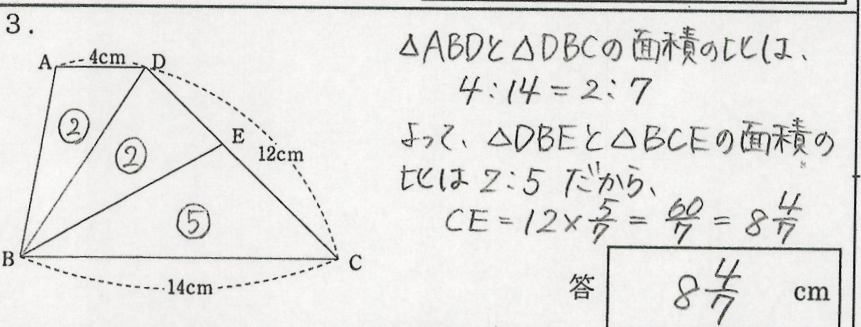 3.
A 4cm D
② ② E
12cm
⑤
B C
14cm
△ABDと△DBCの面積の比は、
4:14=2:7
よって、△DBEと△BCEの面積の
比は2:5だから、
CE=12×5/7=60/7=8 4/7
答 8 4/7 cm